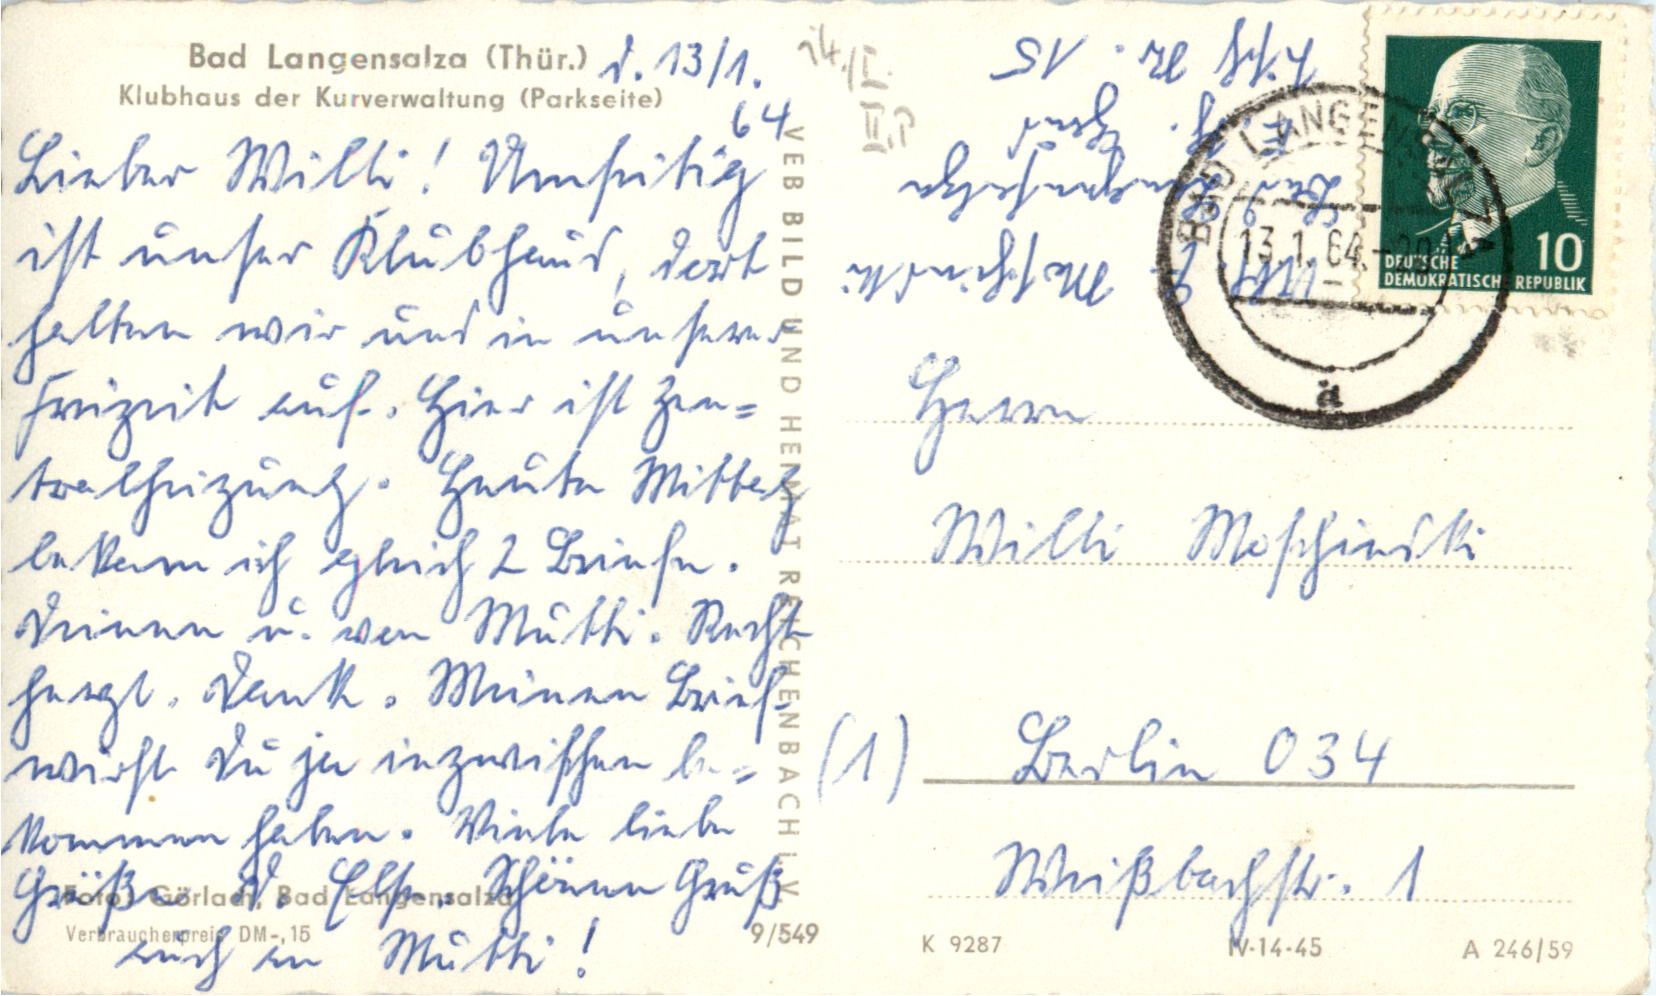 Bad Langensalza (Thür.)
Klubhaus der Kurverwaltung (Parkseite)
d. 13/1.
64
Lieber Willi! Umseitig
ist unser Klubhaus, dort
halten wir uns in unserer
Freizeit auf. Hier ist Zen=
tralheizung. Heute Mittag
bekam ich gleich 2 Briefe.
Deinen u. von Mutti. Recht
herzl. Dank. Meinen Brief
wirst Du ja inzwischen be=
kommen haben. Viele liebe
Grüße D. Else. Schönen Gruß
auch an Mutti!
Foto: Görlach, Bad Langensalza
Verbraucherpreis DM -,15
9/549
VEB BILD UND HEIMAT REICHENBACH I. V.
Moschinski
Bad Langensalza
15
BAD LANGENSALZA
13.1.64.-20
a
10
DEUTSCHE
DEMOKRATISCHE REPUBLIK
Herrn
Willi Moschinski
(1) Berlin O 34
Weißbachstr. 1
K 9287
IV-14-45
A 246/59